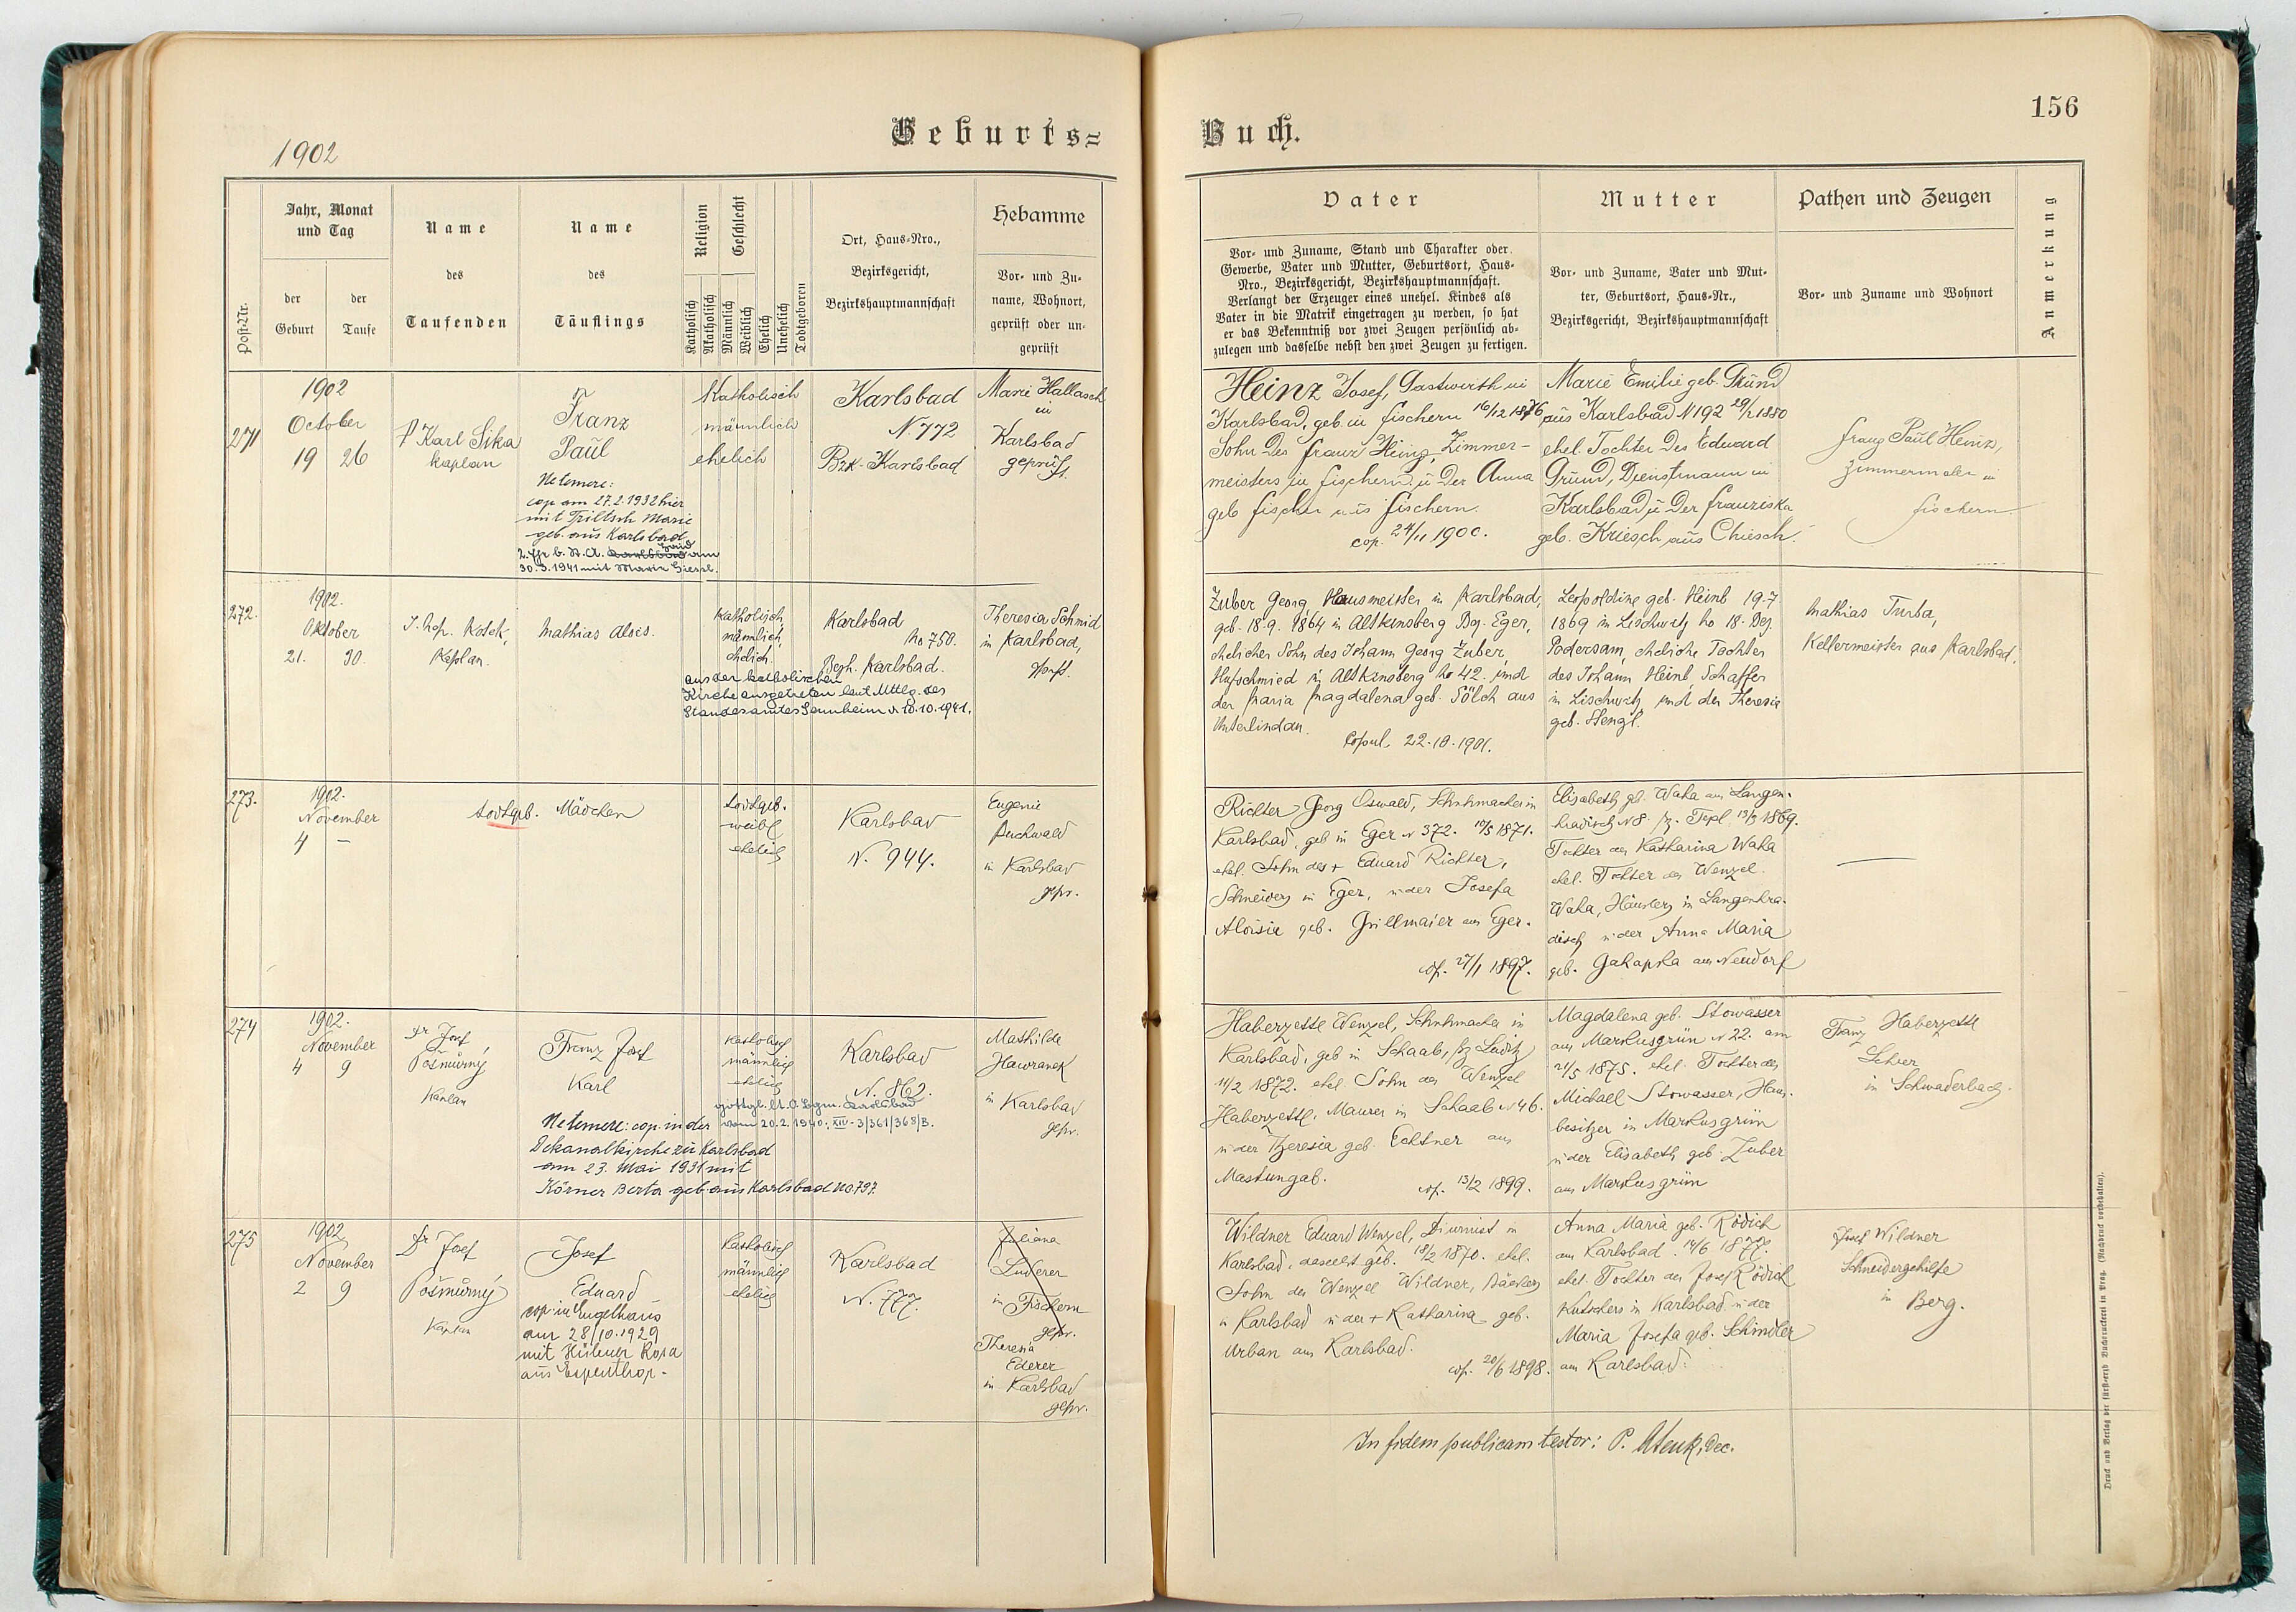 1902
Geburts=
Post-Nr.
Jahr, Monat
und Tag
der
Geburt
der
Taufe
Name
des
Taufenden
Name
des
Täuflings
Religion
Katholisch
Akatholisch
Geschlecht
Männlich
Weiblich
Ehelich
Unehelich
Todtgeboren
Ort, Haus=Nro.,
Bezirksgericht,
Bezirkshauptmannschaft
Hebamme
Vor= und Zu=
name, Wohnort,
geprüft oder un=
geprüft
271
1902
October
19 26
P Karl Sika
Kaplan
Franz
Paul
Ne temere:
cop am 27.2.1932 hier
mit Triltsch Marie
geb. aus Karlsbad
30.3.1941 mit
Katholisch
männlich
ehelich
Karlsbad
N 772
Bzk-Karlsbad
Marie Hallasch
in
Karlsbad
geprüft.
272.
1902.
Oktober
21. 30.
Kaplan.
Mathias Alois.
katholisch,
männlich,
ehelich.
aus der katholischen
Kirche ausgetreten laut Mttlg. des
Standesamtes Sennheim v. 10.10.1941.
Karlsbad
No 758.
Bezh. Karlsbad.
Theresia Schmid
in Karlsbad,
geprft.
273.
1902.
November
4 —
todtgeb. Mädchen
todtgeb.
weibl
ehelich
Karlsbad
N. 944.
Eugenie
Buchwald
in Karlsbad
gepr.
274
1902.
November
4 9
Dr Josef
Pošmůrný
Kaplan
Franz Josef
Karl
Ne temere: cop. in der
Dekanalkirche zu Karlsbad
am 23. Mai 1931 mit
Körner Berta geb. aus Karlsbad No. 797.
katholisch
männlich
ehelich
vom 20.2.1940, XIV-3/361/368/B.
Karlsbad
N. 862.
Mathilde
Hawranek
in Karlsbad
gepr.
275
1902
November
2 9
Dr Josef
Pošmůrný
Kaplan
Josef
Eduard
cop. in Engelhaus
am 28/10.1929
mit Hübner Rosa
aus
Katholisch
männlich
ehelich
Karlsbad
N. 777.
Juliana
Luderer
in Fischern
gepr.
Theresia
Ederer
in Karlsbad
gepr.
Buch.
156
Vater
Vor= und Zuname, Stand und Charakter oder
Gewerbe, Vater und Mutter, Geburtsort, Haus=
Nro., Bezirksgericht, Bezirkshauptmannschaft.
Verlangt der Erzeuger eines unehel. Kindes als
Vater in die Matrik eingetragen zu werden, so hat
er das Bekenntniß vor zwei Zeugen persönlich ab=
zulegen und dasselbe nebst den zwei Zeugen zu fertigen.
Mutter
Vor= und Zuname, Vater und Mut=
ter, Geburtsort, Haus=Nr.,
Bezirksgericht, Bezirkshauptmannschaft
Pathen und Zeugen
Vor= und Zuname und Wohnort
Anmerkung
Heinz Josef, Gastwirth in
Karlsbad, geb. in Fischern 16/12 1876
Sohn Des Franz Heinz, Zimmer-
meisters in Fischern u Der Anna
geb Fischer aus Fischern.
cop. 24/11 1900.
Marie Emilie geb. Gründ
aus Karlsbad N 192 29/2 1880
ehel. Tochter Des Eduard
Gründ, Dienstmann in
Karlsbad u Der Franziska
geb. Kriesch aus Chiesch.
Franz Paul Heinz,
Zimmermaler in
Fischern
Zuber Georg, Hausmeister in Karlsbad,
geb. 18.9. 1864 in Altkinsberg Bez. Eger,
ehelicher Sohn des Johann Georg Zuber,
Hufschmied in Altkinsberg No 42. und
der Maria Magdalena geb. Sölch aus
Unterlindau.
Copul. 22.10.1901.
Leopoldine geb. Heinl 19.7
1869 in Lischwitz No 18. Bez.
Podersam, eheliche Tochter
des Johann Heinl Schaffer
in Lischwitz und der Theresia
geb. Hengl.
Mathias Turba,
Kellermeister aus Karlsbad.
Richter Georg Oswald, Schuhmacher in
Karlsbad, geb in Eger N 372. 10/5 1871.
ehel. Sohn des + Eduard Richter,
Schneiders in Eger, u der Josefa
Aloisia geb. Grillmaier aus Eger.
cop. 27/1 1897.
Elisabeth geb. Waha aus Langen-
hradisch N 8. Bz. Tepl 13/3 1869.
Tochter der Katharina Waha
ehel. Tochter des Wenzel
Waha, Häuslers in Langenhra-
disch u der Anna Maria
geb. Gahapka aus Neudorf
Haberzettl Wenzel, Schuhmacher in
Karlsbad, geb in Schaab, Bz Luditz
11/2 1872. ehel. Sohn des Wenzel
Haberzettl, Maurer in Schaab N 46.
u der Theresia geb. Ecktner aus
Mastungab.
cop. 13/2 1899.
Magdalena geb. Stowasser
aus Markusgrün N 22. am
21/5 1875. ehel. Tochter des
Michael Stowasser, Haus-
besitzer in Markusgrün
u der Elisabeth geb. Zuber
aus Markusgrün
Franz Haberzettl
Lehrer
in Schwaderbach.
Wildner Eduard Wenzel, Diurnist in
Karlsbad, daselbst geb. 18/2 1870. ehel.
Sohn des Wenzel Wildner, Bäckers
in Karlsbad u der + Katharina geb.
Urban aus Karlsbad.
cop. 20/6 1898.
Anna Maria geb. Rödich
aus Karlsbad. 14/6 1877.
ehel. Tochter des Josef Rödich
Kutschers in Karlsbad u der
Maria Josefa geb. Schindler
aus Karlsbad.
Josef Wildner
Schneidergehilfe
in Berg.
In fidem publicam testor: P. Dec.
Druck und Verlag der fürst=erzb. Buchdruckerei in Prag. (Nachdruck vorbehalten).